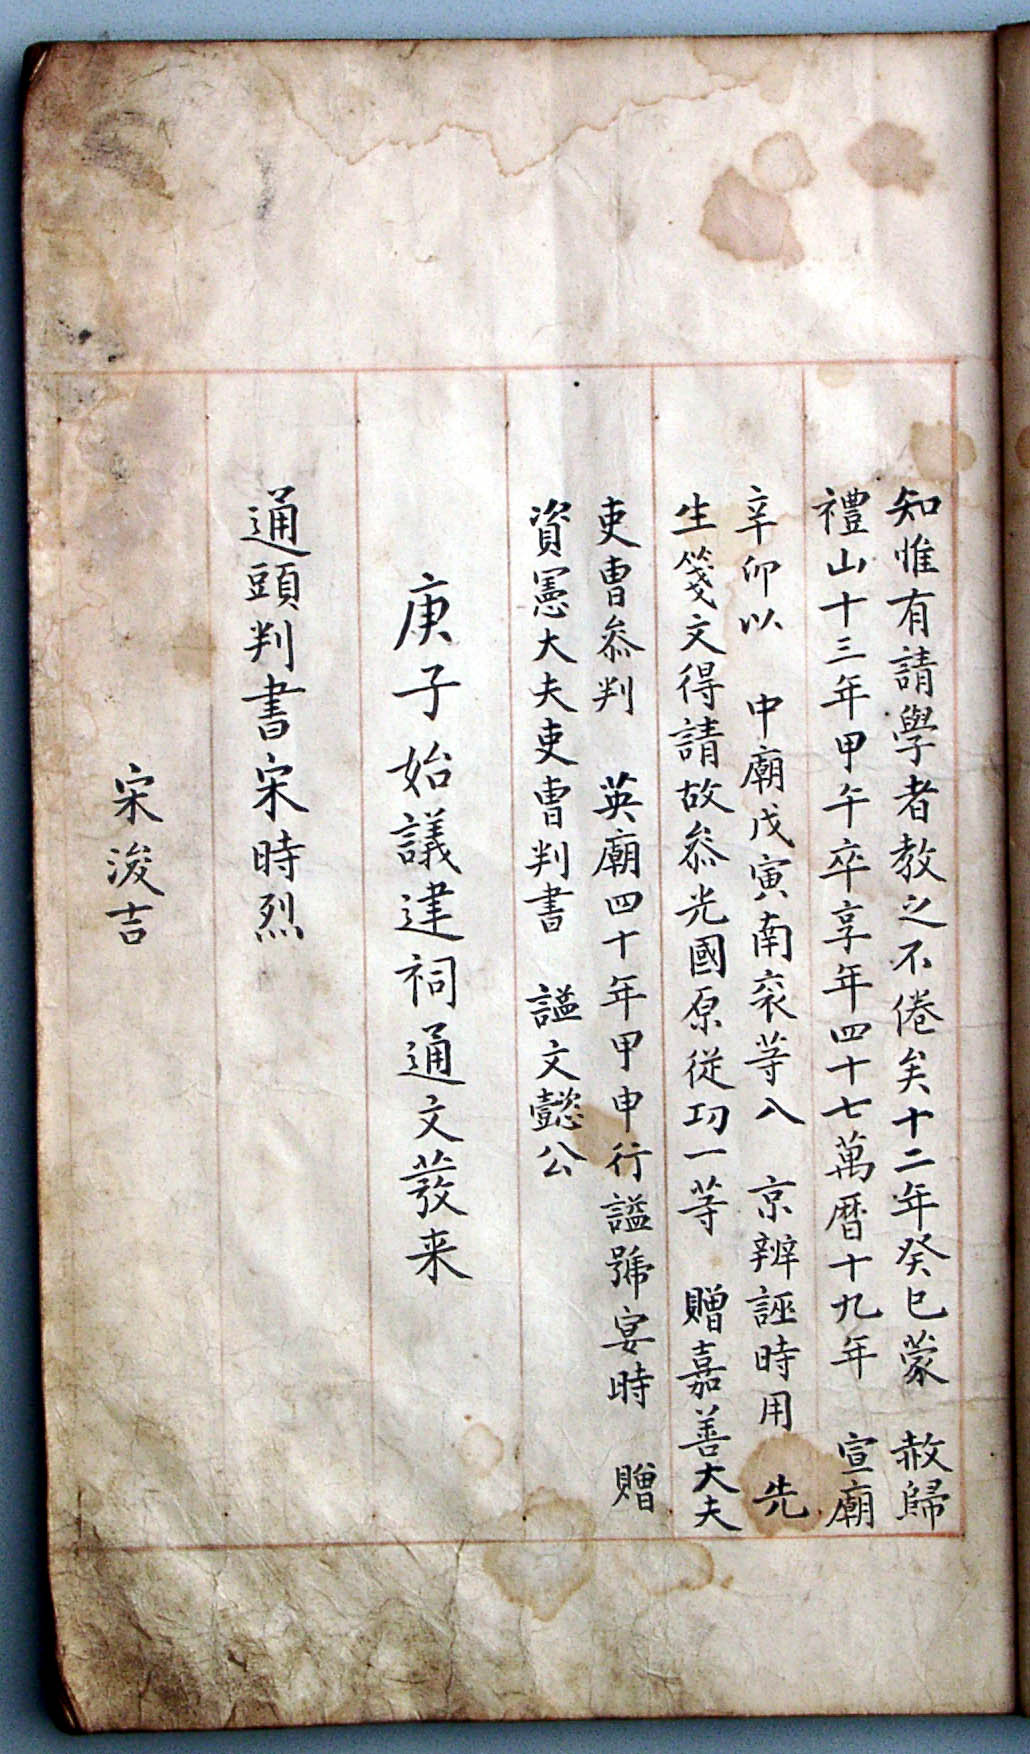 知惟有請學者教之不倦矣十二年癸巳蒙 赦歸
禮山十三年甲午卒享年四十七萬曆十九年 宣廟
辛卯以 中廟戊寅南衮等八 京辨誣時用 先
生箋文得請故叅光國原從功一等 贈嘉善大夫
吏曹叅判 英廟四十年甲申行諡號宴時 贈
資憲大夫吏曹判書 諡文懿公
庚子始議建祠通文發来
通頭判書宋時烈
宋浚吉